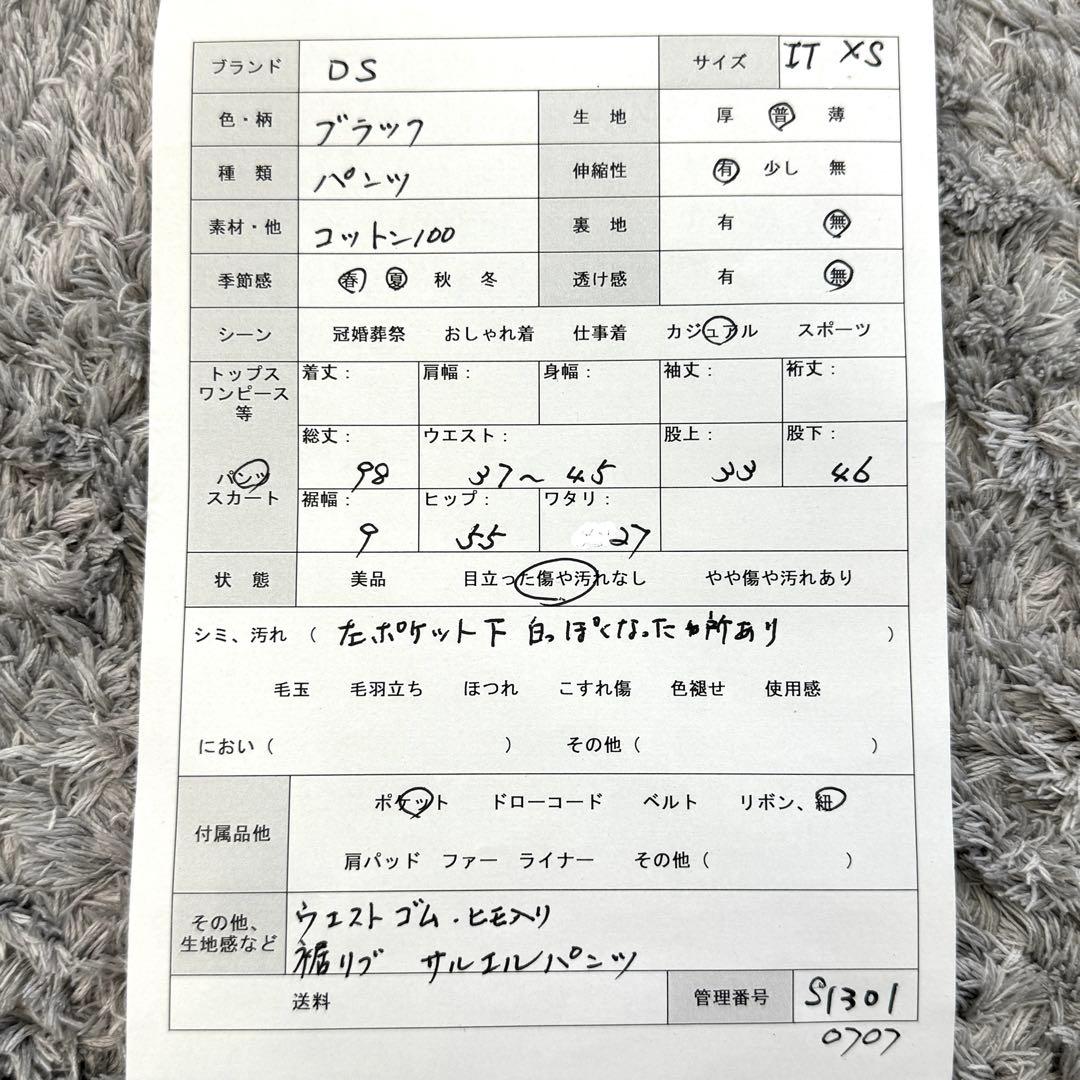 ブランド DS サイズ IT XS
色・柄 ブラック 生 地 厚 普 薄
種 類 パンツ 伸縮性 有 少し 無
素材・他 コットン100 裏 地 有 無
季節感 春 夏 秋 冬 透け感 有 無
シーン 冠婚葬祭 おしゃれ着 仕事着 カジュアル スポーツ
トップス ワンピース 等 着丈： 肩幅： 身幅： 袖丈： 裄丈：
パンツ スカート 総丈： 98 ウエスト： 37〜45 股上： 33 股下： 46
裾幅： 9 ヒップ： 55 ワタリ： 27
状 態 美品 目立った傷や汚れなし やや傷や汚れあり
シミ、汚れ（ 左ポケット下 白っぽくなったカ所あり ）
毛玉 毛羽立ち ほつれ こすれ傷 色褪せ 使用感
におい（ ） その他（ ）
付属品他 ポケット ドローコード ベルト リボン、紐
肩パッド ファー ライナー その他（ ）
その他、 ウエストゴム・ヒモ入り
生地感など 裾リブ サルエルパンツ
送料 管理番号 S1301
0707